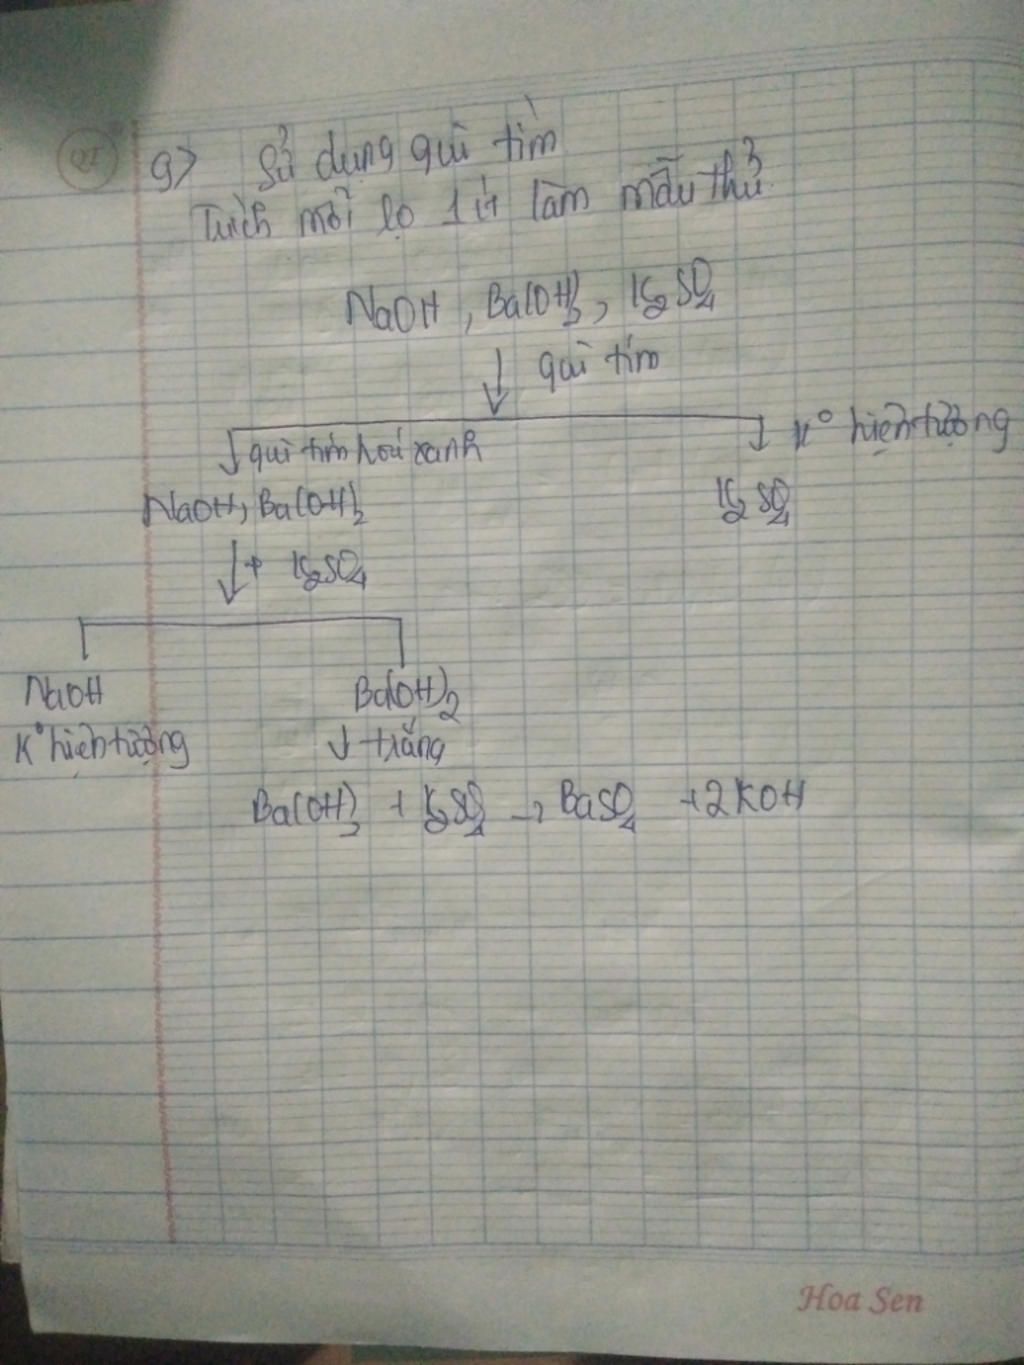 g> Sử dụng quì tím
Trích mỗi lọ 1 ít làm mẫu thử.
NaOH, Ba(OH)2, K2SO4
↓ quì tím
↓ quì tím hoá xanh ↓ K° hiện tượng
NaOH, Ba(OH)2 K2SO4
↓ + K2SO4
NaOH Ba(OH)2
K° hiện tượng ↓ trắng
Ba(OH)2 + K2SO4 → BaSO4 + 2KOH
Hoa Sen